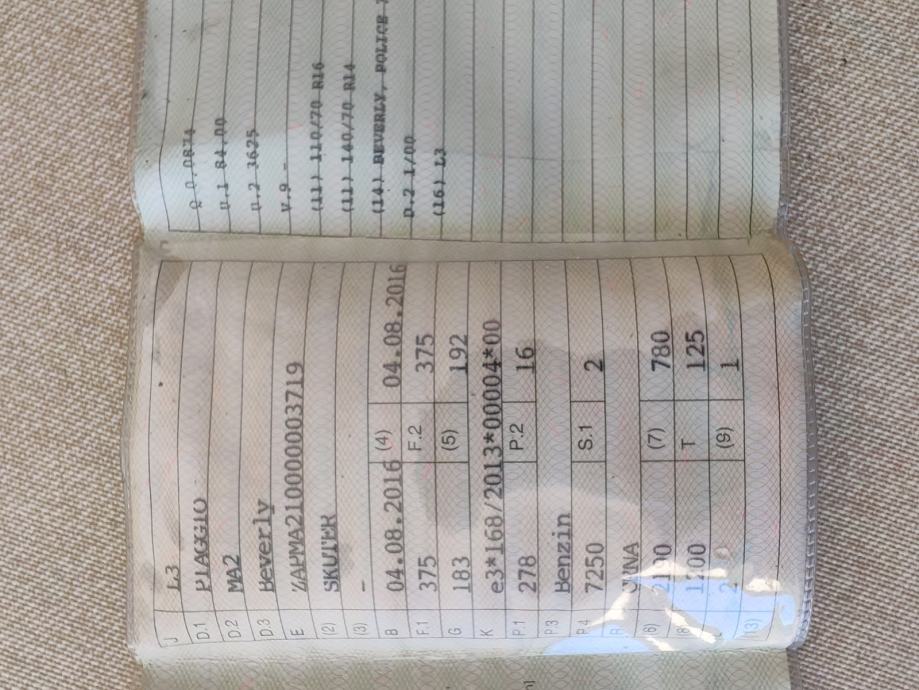 J L3
D.1 PIAGGIO
D.2 MA2
D.3 Beverly
E ZAPMA210000003719
(2) SKUTER
(3) -
B 04.08.2016 (4) 04.08.2016
F.1 375 F.2 375
G 183 (5) 192
K e3*168/2013*00004*00
P.1 278 P.2 16
P.3 Benzin
P.4 7250 S.1 2
R
(6) (7) 780
(8) T 125
(9) 1
(13)
Q 0.0874
U.1 84.00
U.2 3625
V.9 -
(11) 110/70 R16
(11) 140/70 R14
(14) BEVERLY, POLICE
D.2 1/00
(16) L3